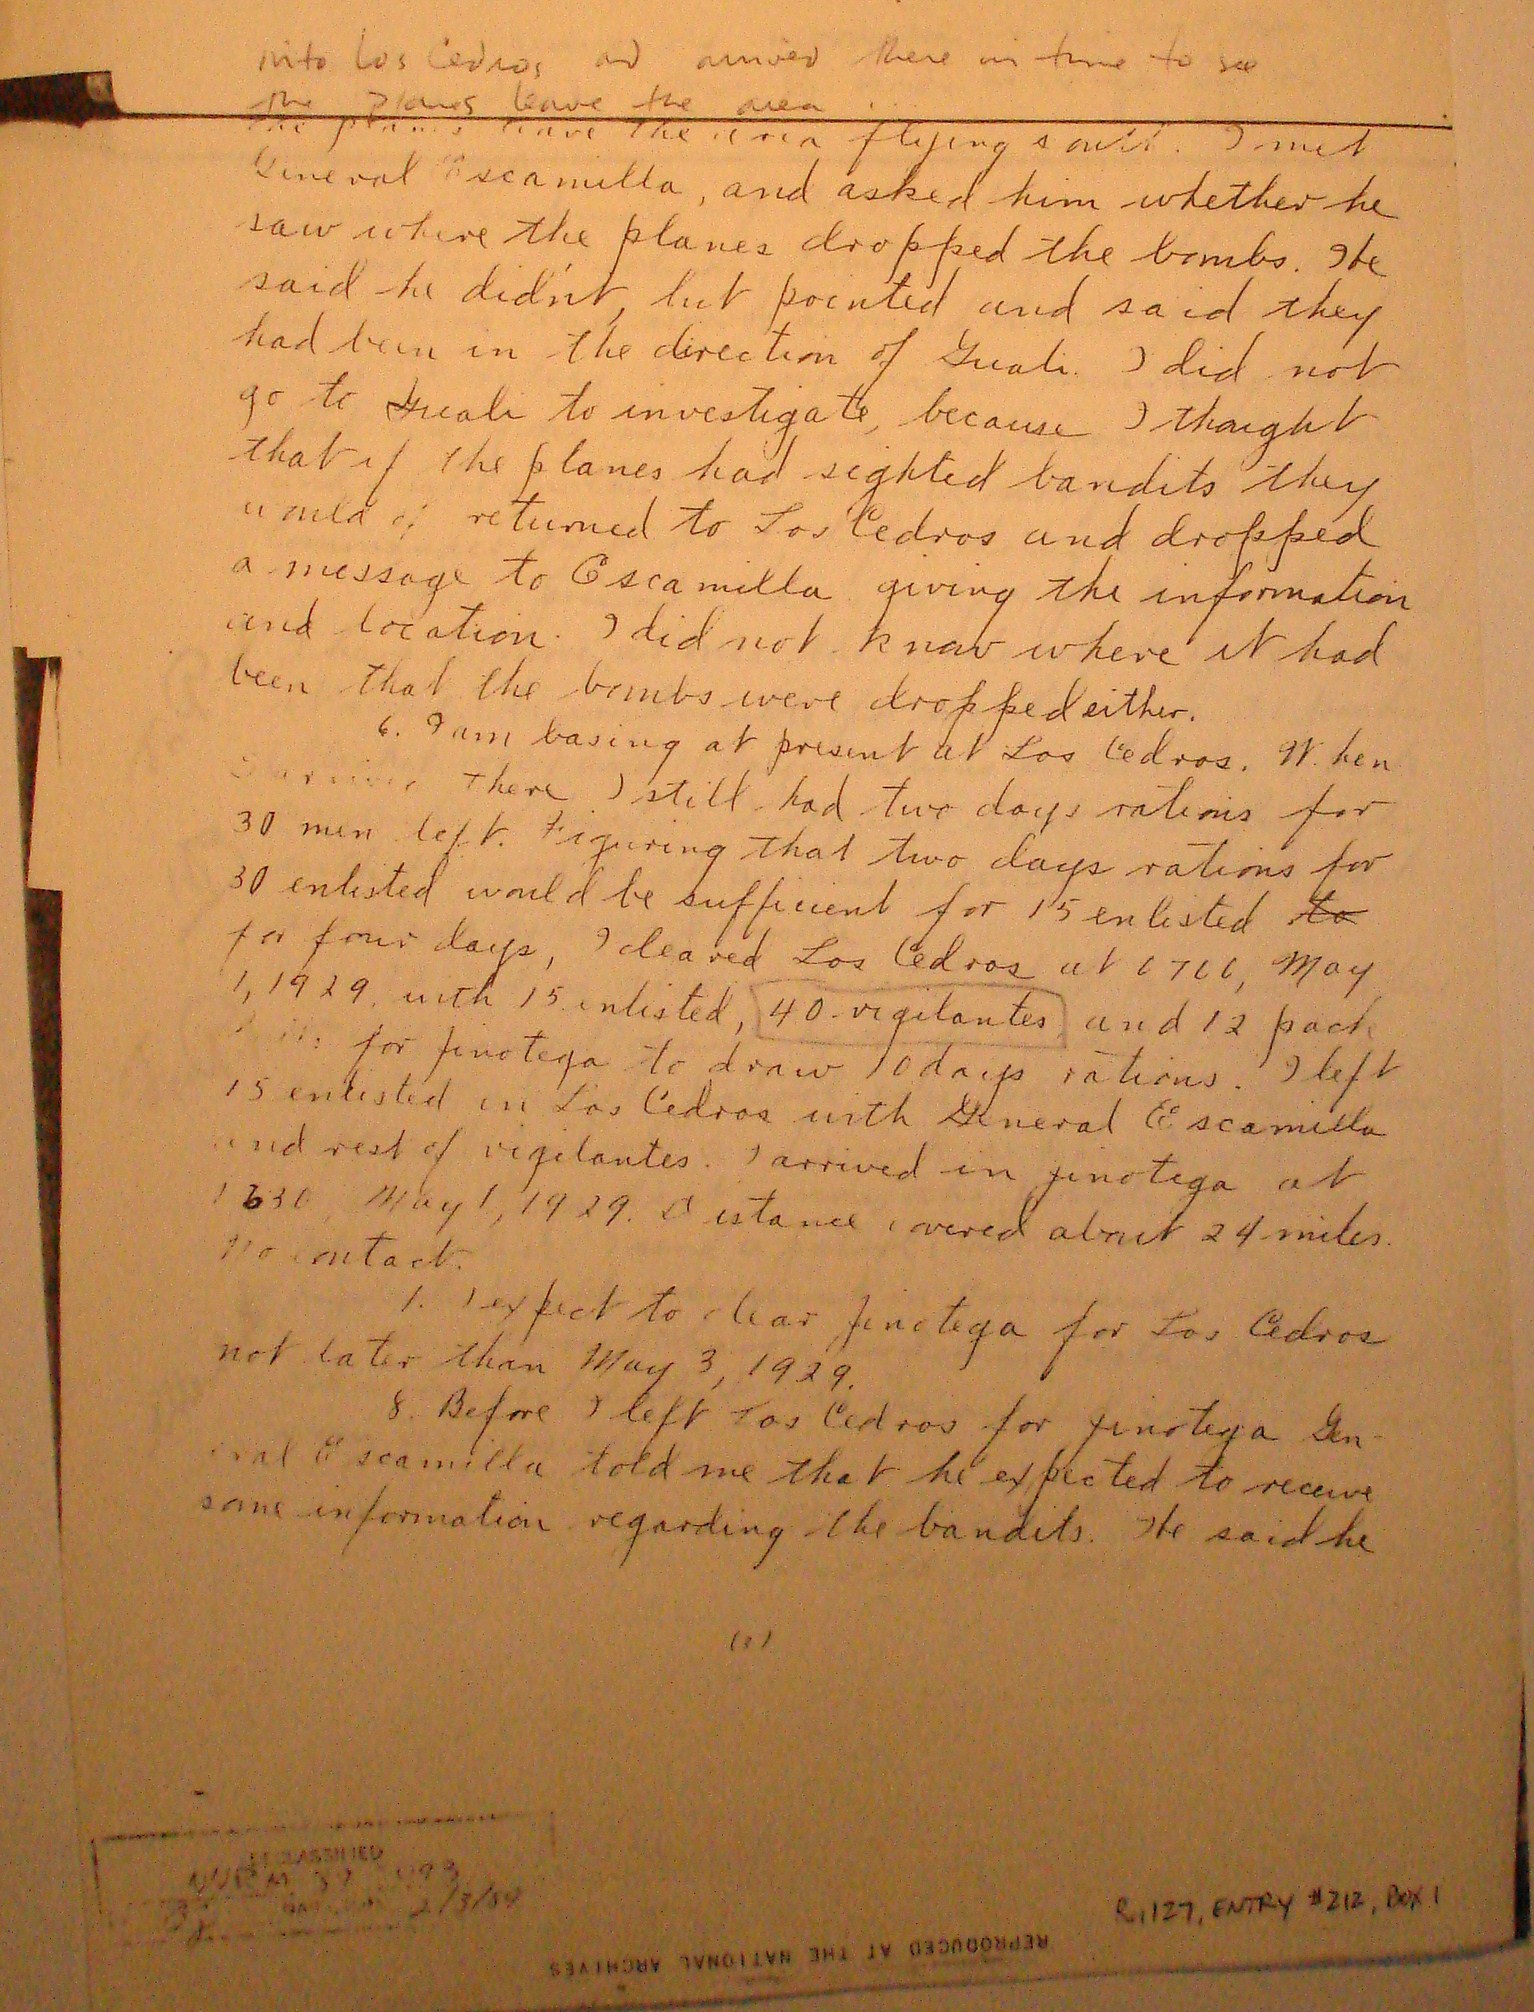 into Los Cedros and arrived there in time to see
the planes leave the area
the planes leave the area flying south. I met
General Escamilla, and asked him whether he
saw where the planes dropped the bombs. He
said he did'nt, but pointed and said they
had been in the direction of Guali. I did not
go to Guali to investigate, because I thought
that if the planes had sighted bandits they
would of returned to Los Cedros and dropped
a message to Escamilla giving the information
and location. I did not know where it had
been that the bombs were dropped either.
6. I am basing at present at Los Cedros. When
I arrived there I still had two days rations for
30 men left. Figuring that two days rations for
30 enlisted would be sufficient for 15 enlisted to
for four days, I cleared Los Cedros at 0700, May
1, 1929. with 15 enlisted, 40 vigilantes and 12 pack
for Jinotega to draw 10 days rations. I left
15 enlisted in Los Cedros with General Escamilla
and rest of vigilantes. I arrived in Jinotega at
1630, May 1, 1929. Distance covered about 24 miles.
No contact.
7. I expect to clear Jinotega for Los Cedros
not later than May 3, 1929.
8. Before I left Los Cedros for Jinotega Gen-
eral Escamilla told me that he expected to receive
some information regarding the bandits. He said he
(3)
DECLASSIFIED
REPRODUCED AT THE NATIONAL ARCHIVES
R.127, ENTRY #212, BOX 1